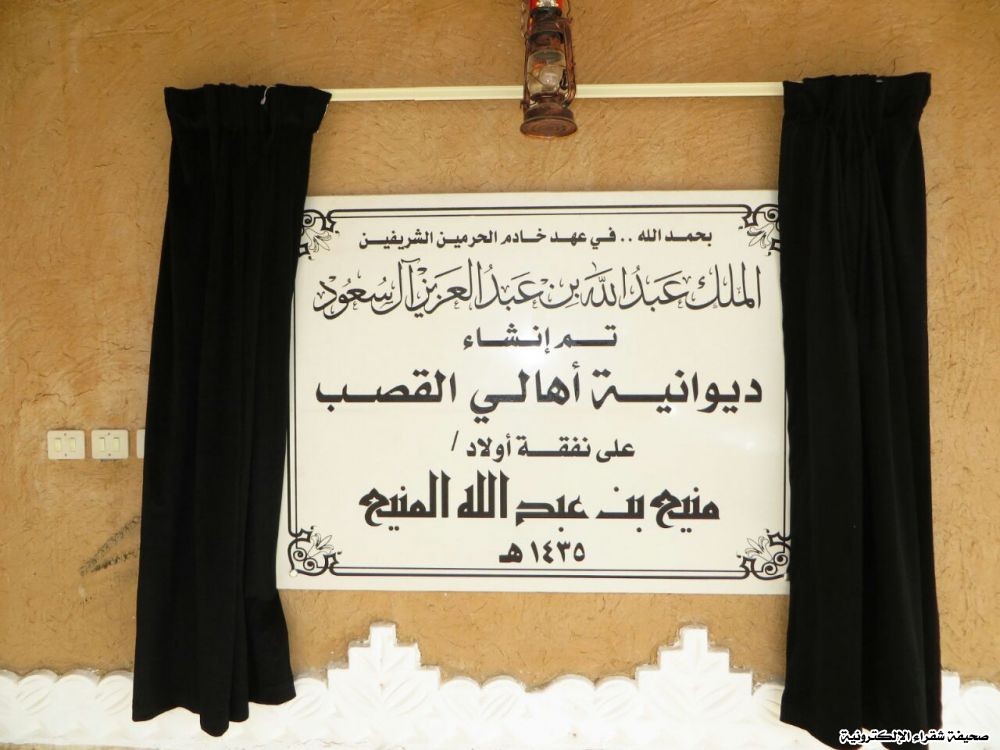 بحمد الله .. في عهد خادم الحرمين الشريفين
الملك عبد الله بن عبد العزيز آل سعود
تم إنشاء
ديوانية أهالي القصب
على نفقة أولاد /
منيع بن عبد الله المنيع
١٤٣٥ هـ
صحيفة شقراء الإلكترونية